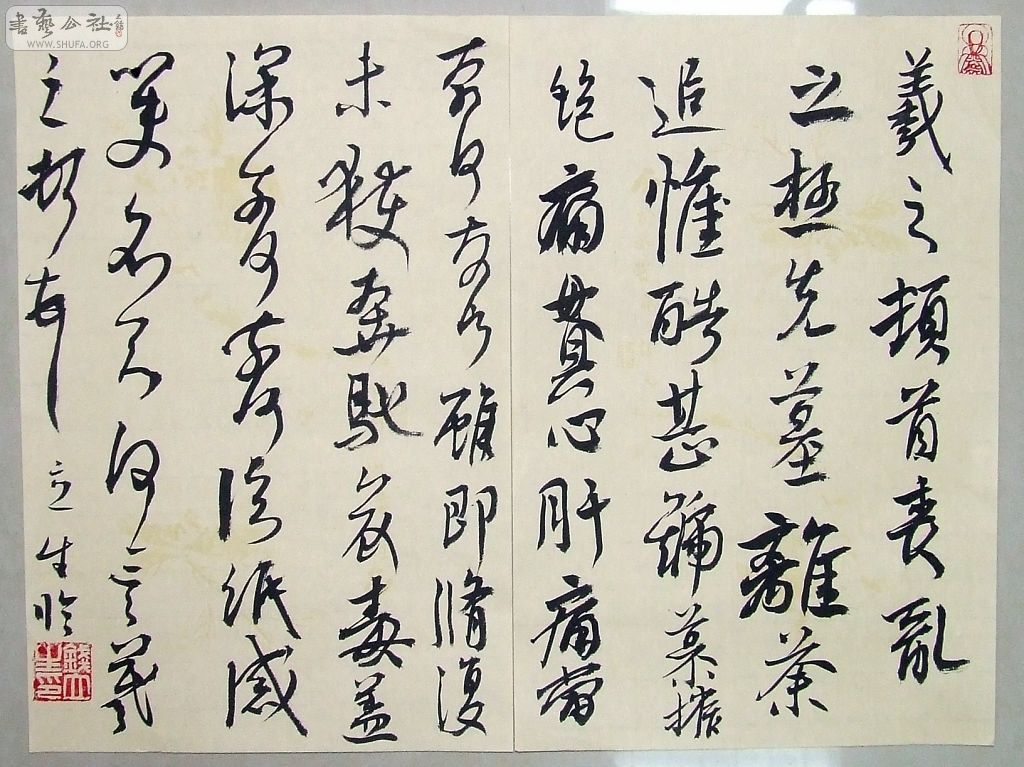 書藝公社
WWW.SHUFA.ORG
羲之頓首喪亂
之極先墓離荼
追惟酷甚號慕摧
絕痛貫心肝痛當
奈何奈何雖即脩復
未獲奔馳哀毒益
深奈何奈何臨紙感
哽不知何言羲
之頓首
立生臨